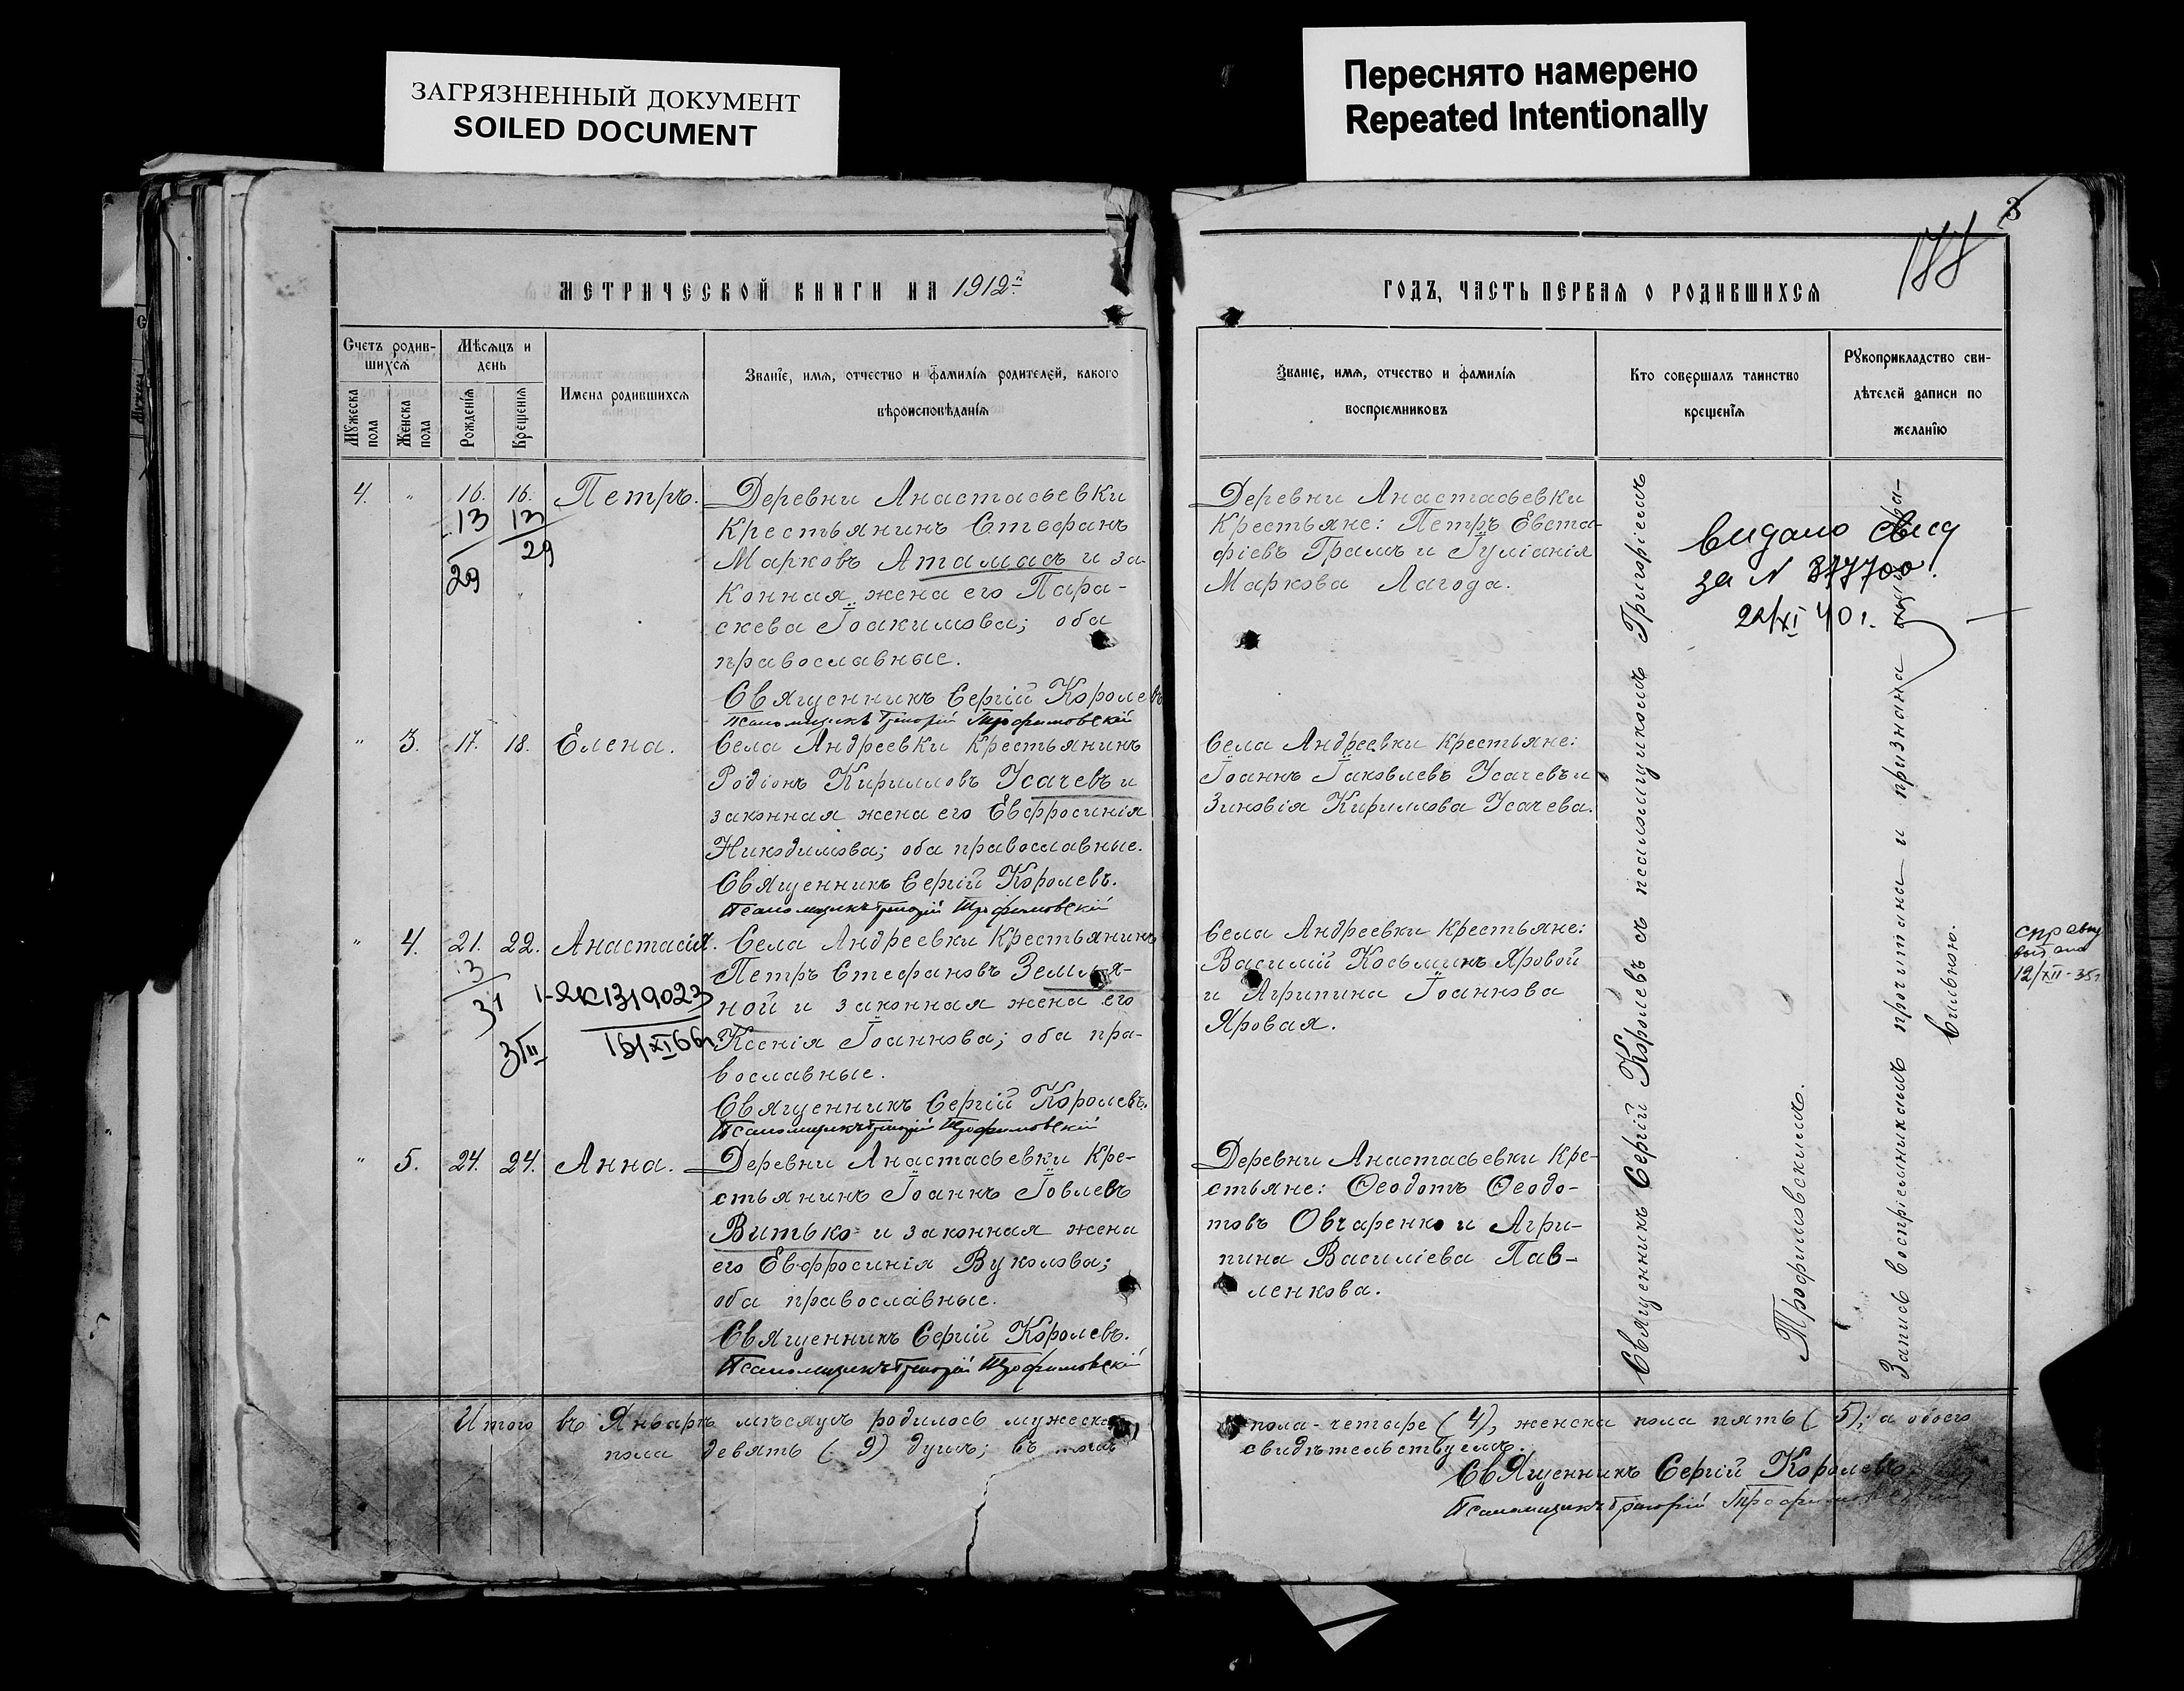 ЗАГРЯЗНЕННЫЙ ДОКУМЕНТ
SOILED DOCUMENT
Переснято намерено
Repeated Intentionally
3
188
МЕТРИЧЕСКОЙ КНИГИ НА 1912й
ГОДЪ, ЧАСТЬ ПЕРВАЯ О РОДИВШИХСЯ
Счетъ родив-
шихся
Мѣсяцъ и
день
Мужеска
пола
Женска
пола
Рожденія
Крещенія
Имена родившихся
Званіе, имя, отчество и фамилія родителей, какого
вѣроисповѣданія
Званіе, имя, отчество и фамилія
воспріемниковъ
Кто совершалъ таинство
крещенія
Рукоприкладство сви-
дѣтелей записи по
желанію
4. " 16. 16. Петръ.
13 13
29 29
Деревни Анастасьевки
крестьянинъ Стефанъ
Марковъ Атамасъ и за-
конная жена его Пара-
скева Іоакимова; оба
православные.
Священникъ Сергій Королевъ
Псаломщикъ Григорій Трофимовскій
Деревни Анастасьевки
крестьяне: Петръ Евста-
фіевъ Грамъ и Іуліанія
Маркова Лагода.
видано свид
за N 377700!
22/XI 40 г.
" 3. 17. 18. Елена.
Села Андреевки крестьянинъ
Родіонъ Кирилловъ Усачевъ и
законная жена его Евфросинія
Никодимова; оба православные.
Священникъ Сергій Королевъ.
Псаломщикъ Григорій Трофимовскій
Села Андреевки крестьяне:
Іоаннъ Іаковлевъ Усачевъ и
Зиновія Кириллова Усачева.
" 4. 21. 22. Анастасія.
3
31
3/II
1-ЯК1319023
16/XI66г.
Села Андреевки крестьянинъ
Петръ Стефановъ Земля-
ной и законная жена его
Ксенія Іоаннова; оба пра-
вославные.
Священникъ Сергій Королевъ.
Псаломщикъ Григорій Трофимовскій
Села Андреевки крестьяне:
Василій Косьминъ Яровой
и Агрипина Іоаннова
Яровая.
справку
выдана
12/XII-35г.
" 5. 24. 24. Анна.
Деревни Анастасьевки кре-
стьянинъ Іоаннъ Іовлевъ
Витько и законная жена
его Евфросинія Вуколова;
оба православные.
Священникъ Сергій Королевъ.
Псаломщикъ Григорій Трофимовскій
Деревни Анастасьевки кре-
стьяне: Ѳеодотъ Ѳеодо-
товъ Овчаренко и Агри-
пина Василіева Пав-
ленкова.
Священникъ Сергій Королевъ съ псаломщикомъ Григоріемъ
Трофимовскимъ.
Запись воспріемникамъ прочитана и признана
вильною.
Итого въ Январѣ мѣсяцѣ родилось мужеска пола-четыре (4), женска пола пять (5); а обоего
пола девять (9) душъ; въ томъ свидѣтельствуемъ.
Священникъ Сергій Королевъ
Псаломщикъ Григорій Трофимовскій